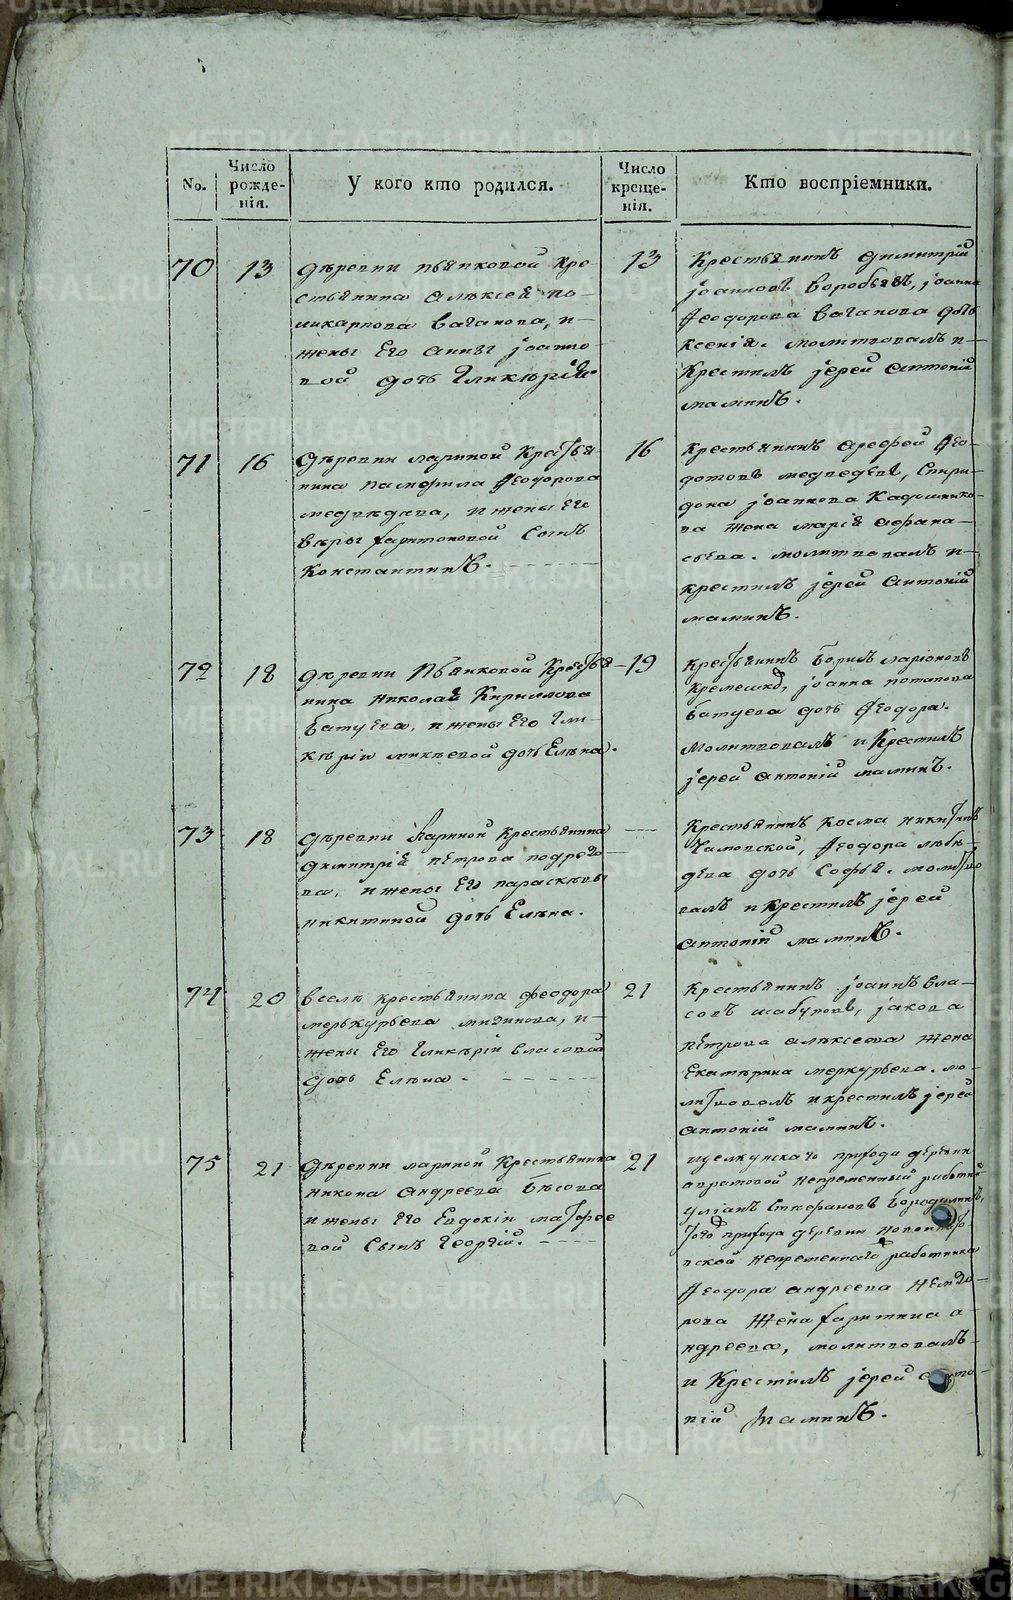 No.
Число рожде-нія.
У кого кто родился.
Число креще-нія.
Кто воспріемники.
70
13
деревни пьянковой кре
стьянина алексея по-
ликарпова ваганова, и-
жены его анны іоанно
вой дочь гликерія.
13
Крестьянинъ димитрій
іоанновъ воробьевъ, іоанна
Феодорова ваганова дочь
ксенія. молитвовалъ и-
Крестилъ іерей антоній
маминъ.
71
16
деревни лариной Крестья
нина памфила Феодорова
медведева, и жены его
веры харитоновой сынъ
Константинъ.
16
Крестьянинъ арефей Фео-
дотовъ медведевъ, Спири-
дона іоаннова Кадошнико-
ва жена марія афана-
сьева. молитвовалъ и-
крестилъ іерей антоній
маминъ.
72
18
деревни Пьянковой Крестья-
нина николая Кириллова
батуева, и жены его гли-
керіи михеевой дочь Елена.
19
Крестьянинъ борисъ ларіоновъ
іоанна потапова
батуева дочь Феодора.
Молитвовалъ и Крестилъ
іерей антоній маминъ.
73
18
деревни Лариной крестьянина
димитрія петрова
ва, и жены его параскевы
никитиной дочь Елена.
Крестьянинъ косма никитинъ
Феодора
дочь Софья. молитво
валъ и крестилъ іерей
антоній маминъ.
74
20
в селе крестьянина феодора
меркурьева и-
жены его гликеріи власовой
дочь Елена.
21
Крестьянинъ іоаннъ вла-
совъ шабуровъ, іакова
Петрова алексеева жена
Екатерина меркурьева. мо-
литвовалъ и крестилъ іерей
антоній маминъ.
75
21
деревни лариной Крестьянина
никона андреева бесова
и жены его Евдокіи
вой Сынъ георгій.
21
щелкунскаго прихода деревни
непременный работникъ
уліанъ стефановъ бородулинъ,
того прихода деревни
непременнаго работника
Феодора андреева
жена харитина а-
ндреева, молитвовалъ
и Крестилъ іерей анто-
ній маминъ.
METRIKI.GASO-URAL.RU